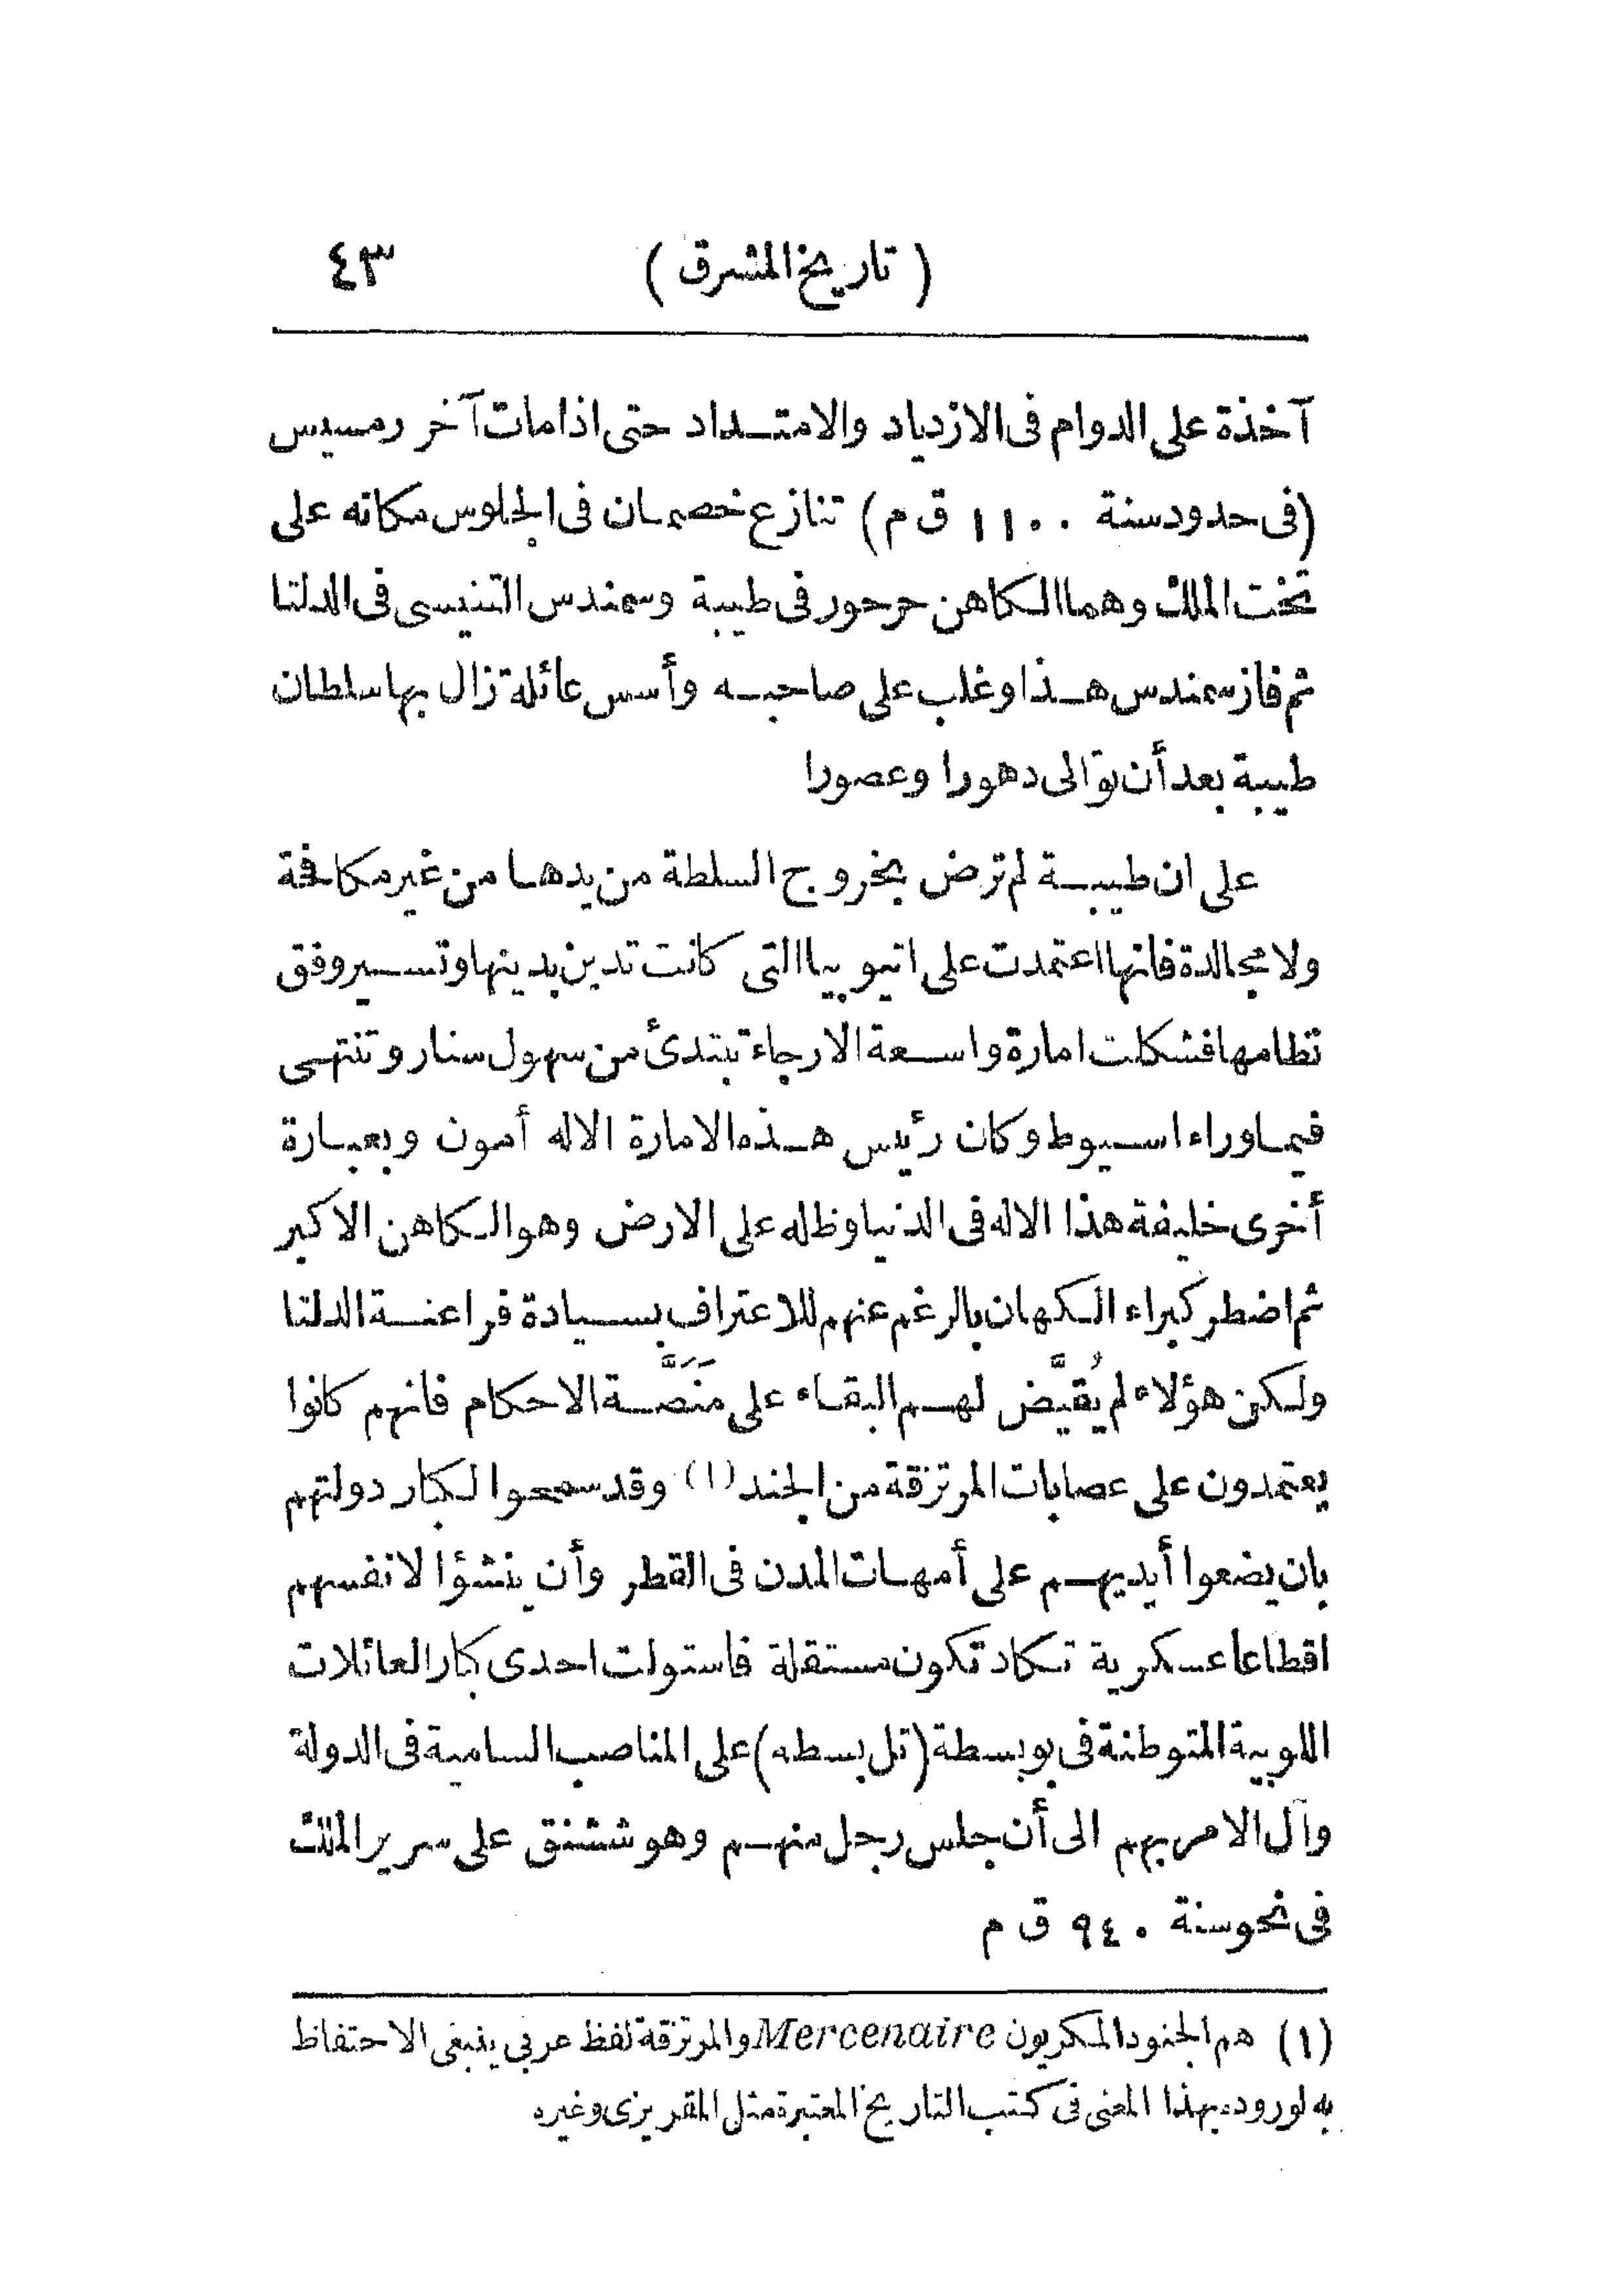 ( تاريخ المشرق ) ٤٣
آخذة على الدوام فى الازدياد والامتداد حتى اذا مات آخر رمسيس
(فى حدود سنة ١١٠٠ ق م) تنازع خصمان فى الجلوس مكانه على
تخت الملك وهما الكاهن حرحور فى طيبة وسمندس التنيسى فى الدلتا
ثم فاز سمندس هذا وغلب على صاحبه وأسس عائلة زال بها سلطان
طيبة بعد أن توالى دهورا وعصورا
على ان طيبة لم ترض بخروج السلطة من يدها من غير مكافحة
ولا مجالدة فانها اعتمدت على اتيوبيا التى كانت تدين بدينها وتسير وفق
نظامها فشكلت امارة واسعة الارجاء تبتدئ من سهول سنار وتنتهى
فيما وراء اسيوط وكان رئيس هذه الامارة الاله أمون وبعبارة
أخرى خليفة هذا الاله فى الدنيا وظله على الارض وهو الكاهن الاكبر
ثم اضطر كبراء الكهان بالرغم عنهم للاعتراف بسيادة فراعنة الدلتا
ولكن هؤلاء لم يُقيَّض لهم البقاء على مَنَصَّة الاحكام فانهم كانوا
يعتمدون على عصابات المرتزقة من الجند (١) وقد سمحوا لكبار دولتهم
بان يضعوا أيديهم على أمهات المدن فى القطر وأن ينشؤا لانفسهم
اقطاعا عسكرية تكاد تكون مستقلة فاستولت احدى كبار العائلات
اللوبية المتوطنة فى بوبسطة (تل بسطه) على المناصب السامية فى الدولة
وآل الامر بهم الى أن جلس رجل منهم وهو ششنق على سرير الملك
فى نحو سنة ٩٤٠ ق م
(١) هم الجنود المكريون Mercenaire والمرتزقة لفظ عربى ينبغى الاحتفاظ
به لوروده بهذا المعنى فى كتب التاريخ المعتبرة مثل المقريزى وغيره